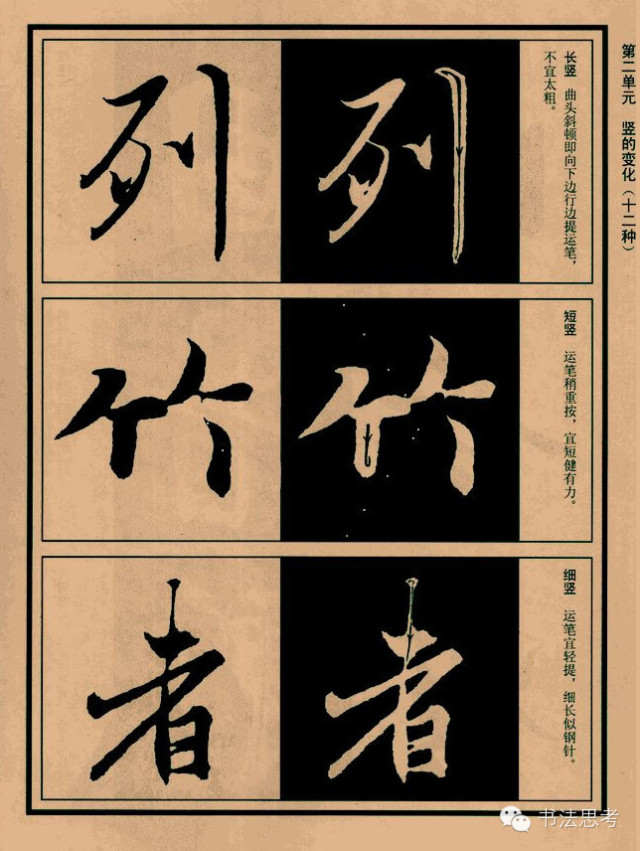 第二单元 竖的变化（十二种）
长竖 曲头斜顿即向下边行边提运笔，
不宜太粗。
列 列
短竖 运笔稍重按，宜短健有力。
竹 竹
细竖 运笔宜轻提，细长似钢针。
者 者
书法思考